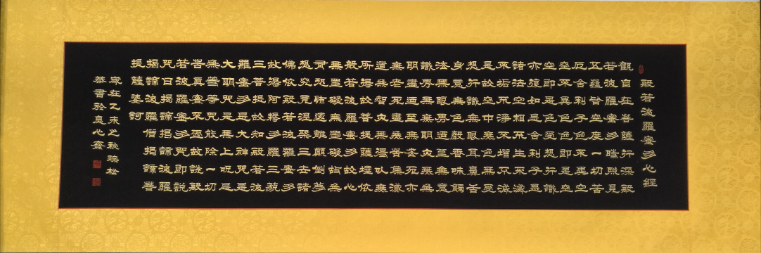 般若波羅蜜多心經
觀自在菩薩行深般
若波羅蜜多時照見
五蘊皆空度一切苦
厄舍利子色不異空
空不異色色即是空
空即是色受想行識
亦復如是舍利子是
諸法空相不生不滅
不垢不淨不增不減
是故空中無色無受
想行識無眼耳鼻舌
身意無色聲香味觸
法無眼界乃至無意
識界無無明亦無無
明盡乃至無老死亦
無老死盡無苦集滅
道無智亦無得以無
所得故菩提薩埵依
般若波羅蜜多故心
無罣礙無罣礙故無
有恐怖遠離顛倒夢
想究竟涅槃三世諸
佛依般若波羅蜜多
故得阿耨多羅三藐
三菩提故知般若波
羅蜜多是大神咒是
大明咒是無上咒是
無等等咒能除一切
苦真實不虛故說般
若波羅蜜多咒即說
咒曰揭諦揭諦波羅
揭諦波羅僧揭諦菩
提薩婆訶
歲在乙未之秋瑞松
恭書於真心齋